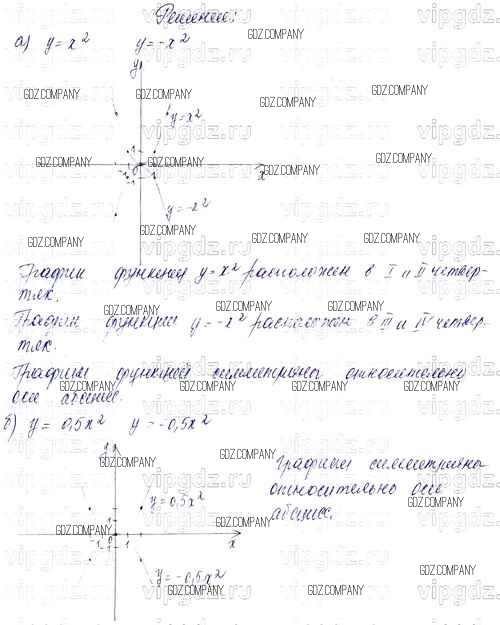 Решение:
а) y = x² y = -x²
y
y = x²
-1 0 1 x
y = -x²
График функции y = x² расположен в I и II четвер-
тях.
График функции y = -x² расположен в III и IV четвер-
тях.
Графики функций симметричны относительно
оси абсцисс.
б) y = 0,5x² y = -0,5x²
y
Графики симметричны
относительно оси
абсцисс.
y = 0,5x²
1
-1 0 1 x
-1
y = -0,5x²
GDZ.COMPANY
vipgdz.ru